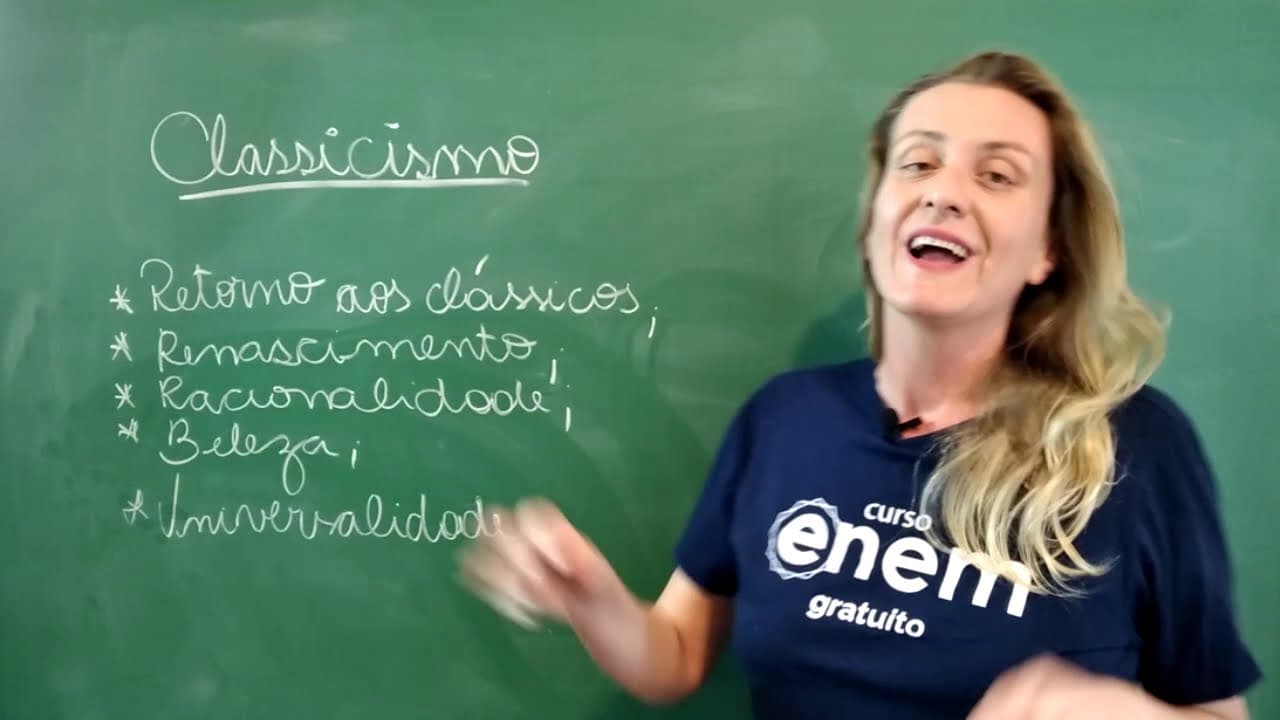 Classicismo
* Retorno aos clássicos;
* Renascimento;
* Racionalidade;
* Beleza;
* Universalidade
curso
enem
gratuito